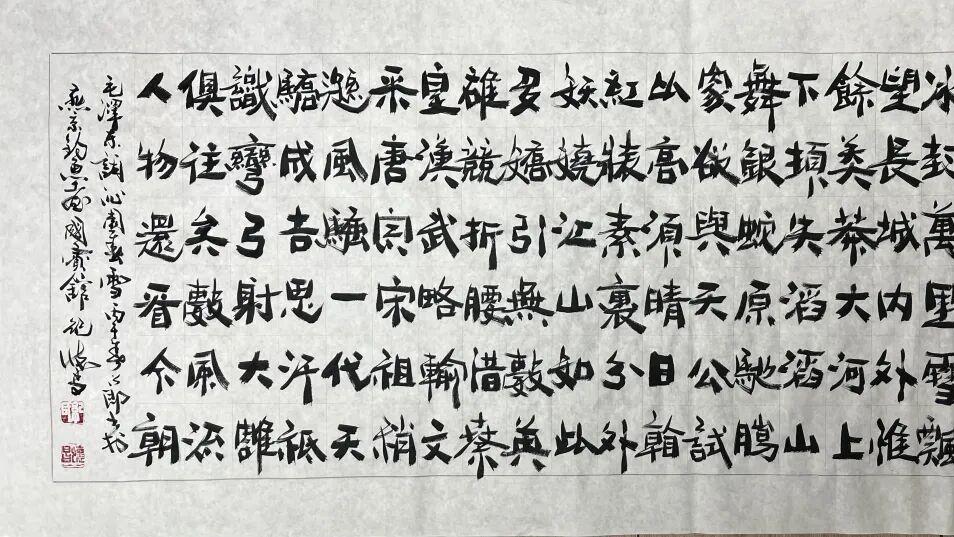 冰封萬里雪飄
望長城内外惟
餘莽莽大河上
下頓失滔滔山
舞銀蛇原馳臘
象欲與天公試
比高須晴日看
紅裝素裹分外
妖嬈江山如此
多嬌引無數英
雄競折腰惜秦
皇漢武略輸文
采唐宗宋祖稍
遜風騷一代天
驕成吉思汗祗
識彎弓射大雕
俱往矣數風流
人物還看今朝
毛澤東詞沁園春雪丙午春節書於
燕京釣魚臺國賓館紀